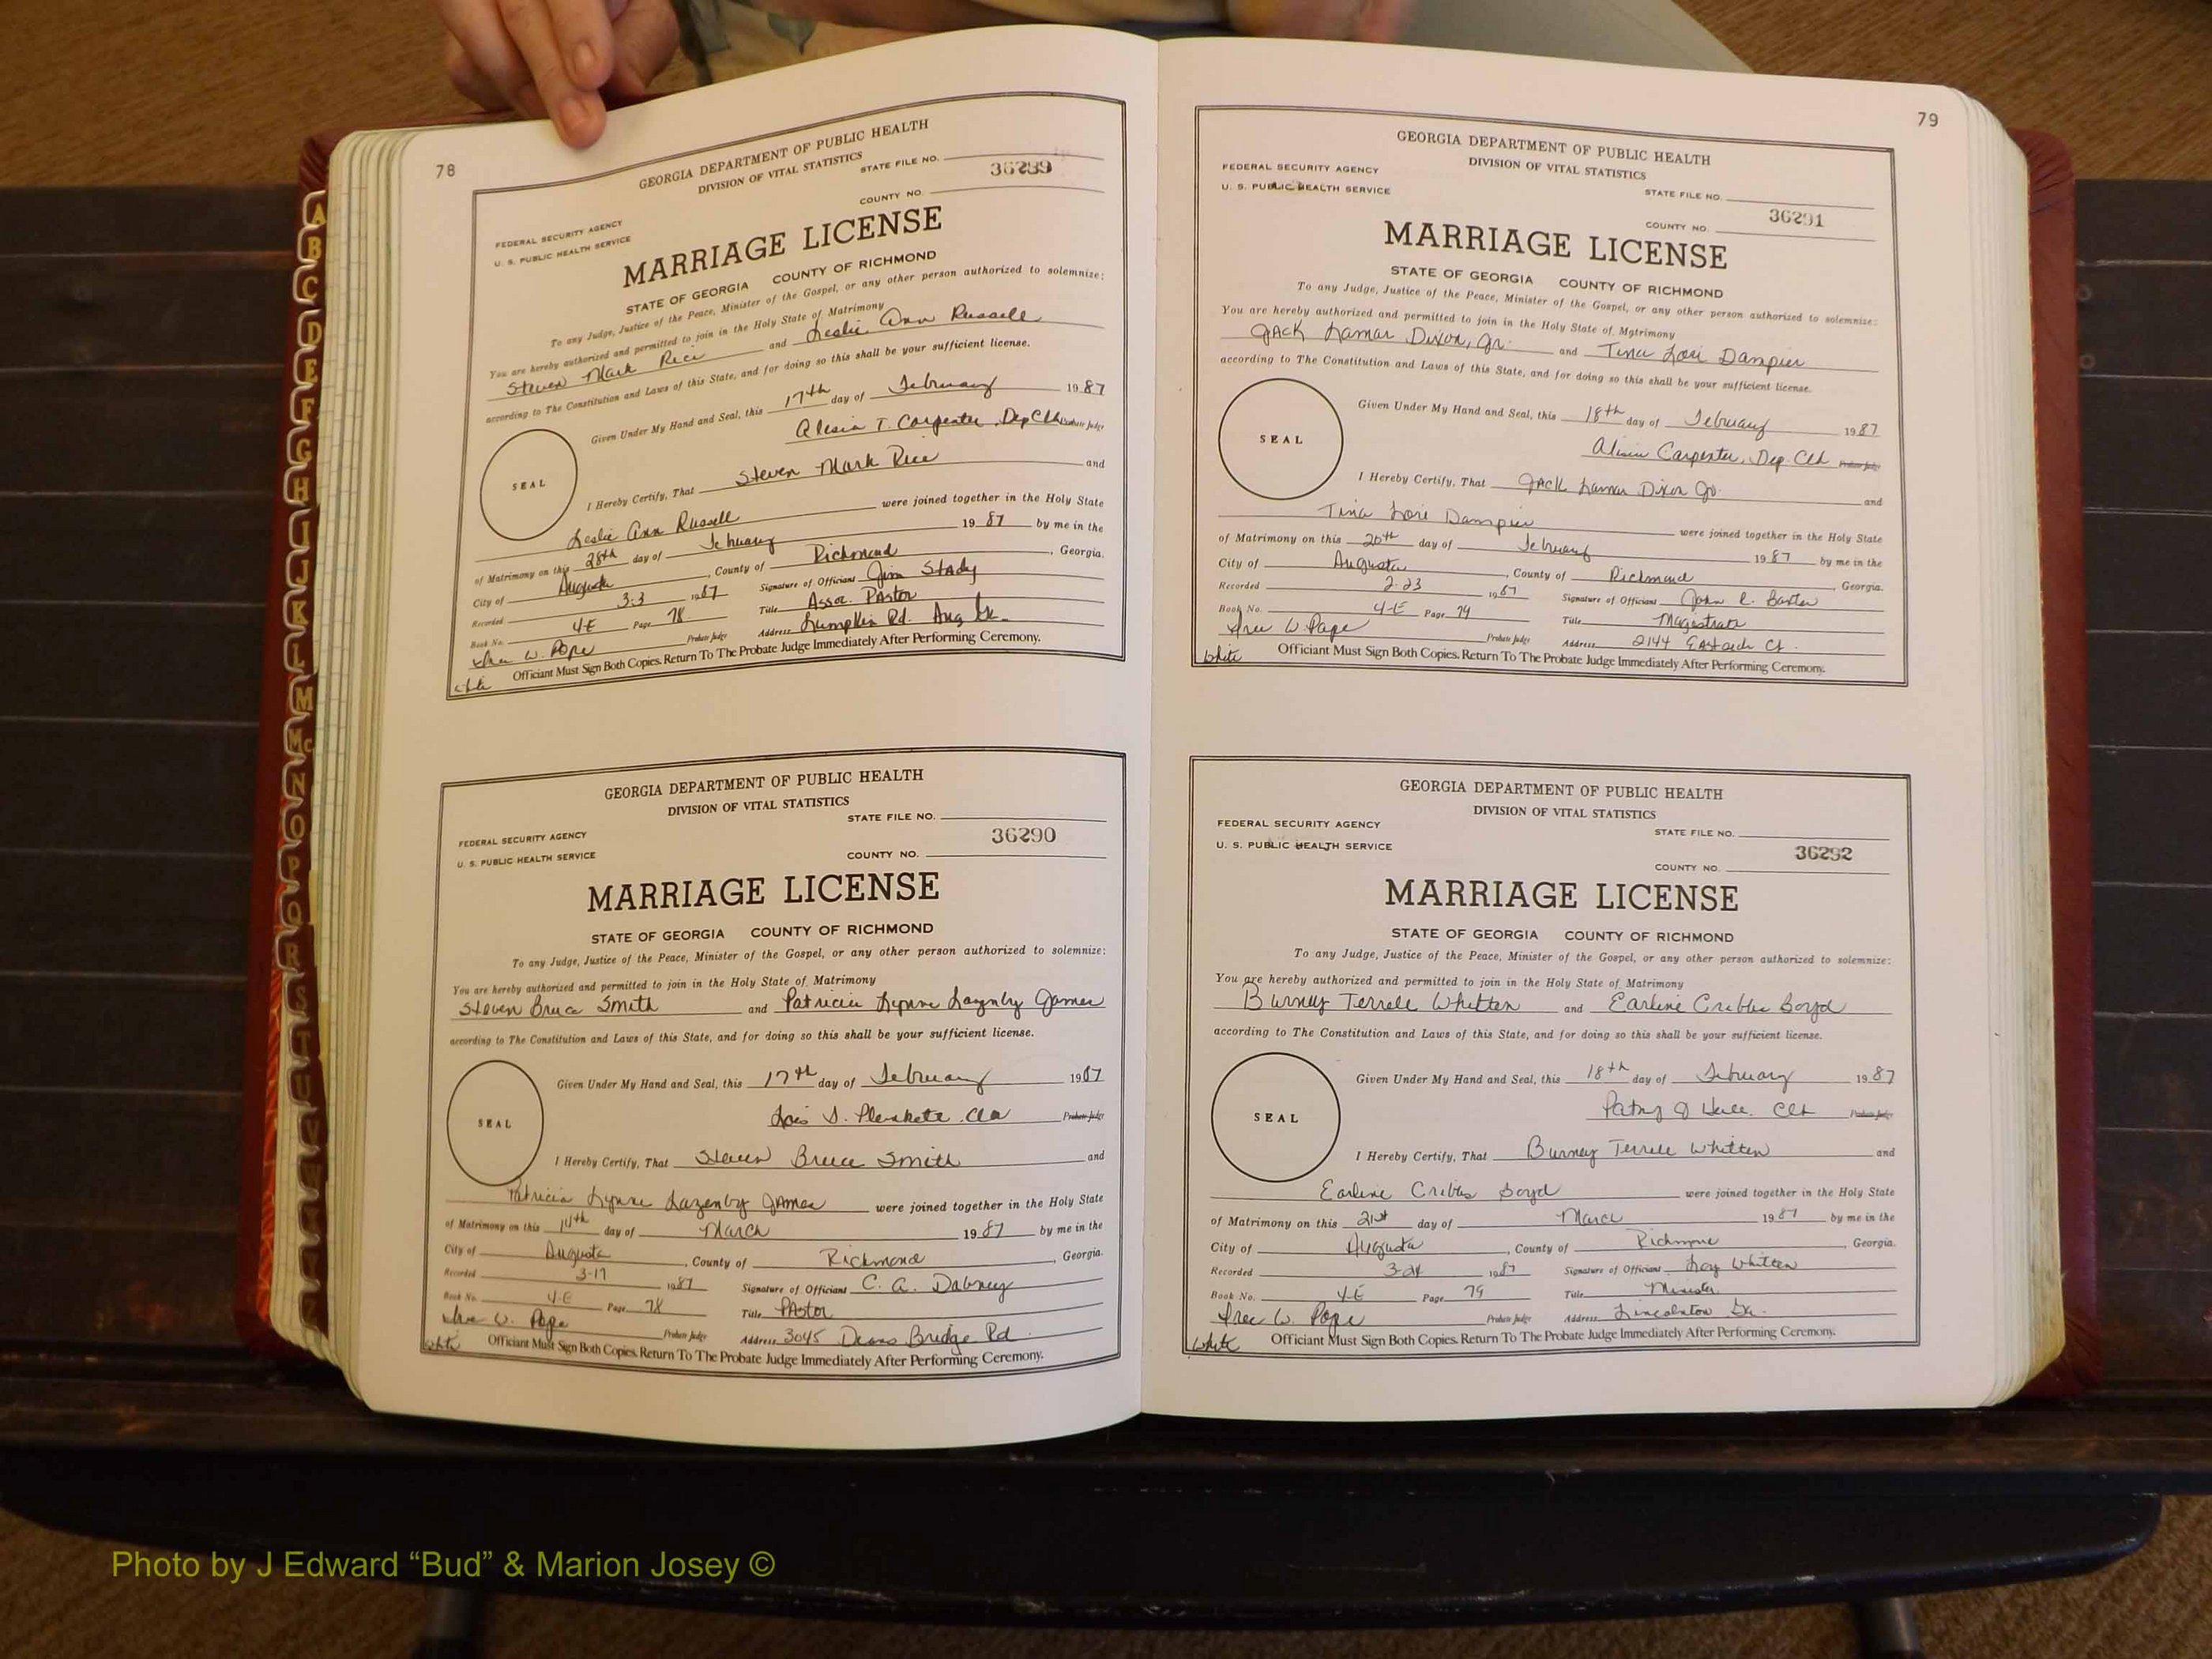 78
GEORGIA DEPARTMENT OF PUBLIC HEALTH
DIVISION OF VITAL STATISTICS
STATE FILE NO.
36289
COUNTY NO.
FEDERAL SECURITY AGENCY
U. S. PUBLIC HEALTH SERVICE
MARRIAGE LICENSE
STATE OF GEORGIA COUNTY OF RICHMOND
To any Judge, Justice of the Peace, Minister of the Gospel, or any other person authorized to solemnize:
You are hereby authorized and permitted to join in the Holy State of Matrimony
Steven Mark Rice and Leslie Ann Russell
according to The Constitution and Laws of this State, and for doing so this shall be your sufficient license.
Given Under My Hand and Seal, this 17th day of February 1987
Alicia T. Carpenter, Dep Clk Probate Judge
SEAL
I Hereby Certify, That Steven Mark Rice and
Leslie Ann Russell were joined together in the Holy State
of Matrimony on this 28th day of February 1987 by me in the
City of Augusta, County of Richmond, Georgia.
Recorded 3-3 1987 Signature of Officiant Jim
Book No. 4-E Page 78 Title Assoc. Pastor
W. Pope Probate Judge Address Lumpkin Rd. Aug Ga.
Officiant Must Sign Both Copies. Return To The Probate Judge Immediately After Performing Ceremony.
white
GEORGIA DEPARTMENT OF PUBLIC HEALTH
DIVISION OF VITAL STATISTICS
STATE FILE NO.
36290
FEDERAL SECURITY AGENCY
U. S. PUBLIC HEALTH SERVICE
COUNTY NO.
MARRIAGE LICENSE
STATE OF GEORGIA COUNTY OF RICHMOND
To any Judge, Justice of the Peace, Minister of the Gospel, or any other person authorized to solemnize:
You are hereby authorized and permitted to join in the Holy State of Matrimony
Steven Bruce Smith and Patricia Lynne Lazenby James
according to The Constitution and Laws of this State, and for doing so this shall be your sufficient license.
Given Under My Hand and Seal, this 17th day of February 1987
Lois S. Plunkett Clk Probate Judge
SEAL
I Hereby Certify, That Steven Bruce Smith and
Patricia Lynne Lazenby James were joined together in the Holy State
of Matrimony on this 14th day of March 1987 by me in the
City of Augusta, County of Richmond, Georgia.
Recorded 3-17 1987 Signature of Officiant C. A. Dabney
Book No. 4-E Page 78 Title Pastor
W. Pope Probate Judge Address 3045 Deans Bridge Rd.
Officiant Must Sign Both Copies. Return To The Probate Judge Immediately After Performing Ceremony.
white
79
GEORGIA DEPARTMENT OF PUBLIC HEALTH
DIVISION OF VITAL STATISTICS
FEDERAL SECURITY AGENCY
U. S. PUBLIC HEALTH SERVICE
STATE FILE NO.
36291
COUNTY NO.
MARRIAGE LICENSE
STATE OF GEORGIA COUNTY OF RICHMOND
To any Judge, Justice of the Peace, Minister of the Gospel, or any other person authorized to solemnize:
You are hereby authorized and permitted to join in the Holy State of Matrimony
Jack Lamar Dixon, Jr. and Tina Lori Dampier
according to The Constitution and Laws of this State, and for doing so this shall be your sufficient license.
Given Under My Hand and Seal, this 18th day of February 1987
Alicia Carpenter, Dep. Clk Probate Judge
SEAL
I Hereby Certify, That Jack Lamar Dixon Jr. and
Tina Lori Dampier were joined together in the Holy State
of Matrimony on this 20th day of February 1987 by me in the
City of Augusta, County of Richmond, Georgia.
Recorded 2-23 1987 Signature of Officiant John R. Baxter
Book No. 4-E Page 79 Title Magistrate
W. Pope Probate Judge Address 2144 Ct.
Officiant Must Sign Both Copies. Return To The Probate Judge Immediately After Performing Ceremony.
white
GEORGIA DEPARTMENT OF PUBLIC HEALTH
DIVISION OF VITAL STATISTICS
FEDERAL SECURITY AGENCY
STATE FILE NO.
U. S. PUBLIC HEALTH SERVICE
36292
COUNTY NO.
MARRIAGE LICENSE
STATE OF GEORGIA COUNTY OF RICHMOND
To any Judge, Justice of the Peace, Minister of the Gospel, or any other person authorized to solemnize:
You are hereby authorized and permitted to join in the Holy State of Matrimony
Burney Terrell Whitten and Earline Cribbs Boyd
according to The Constitution and Laws of this State, and for doing so this shall be your sufficient license.
Given Under My Hand and Seal, this 18th day of February 1987
Patsy J Hall, Clk Probate Judge
SEAL
I Hereby Certify, That Burney Terrell Whitten and
Earline Cribbs Boyd were joined together in the Holy State
of Matrimony on this 21st day of March 1987 by me in the
City of Augusta, County of Richmond, Georgia.
Recorded 3-24 1987 Signature of Officiant Whitten
Book No. 4-E Page 79 Title Minister
W. Pope Probate Judge Address Lincolnton Ga.
Officiant Must Sign Both Copies. Return To The Probate Judge Immediately After Performing Ceremony.
white
A
B
C
D
E
F
G
H
I
J
K
L
M
Mc
N
O
P
Q
R
S
T
U
V
W
Photo by J Edward “Bud” & Marion Josey ©